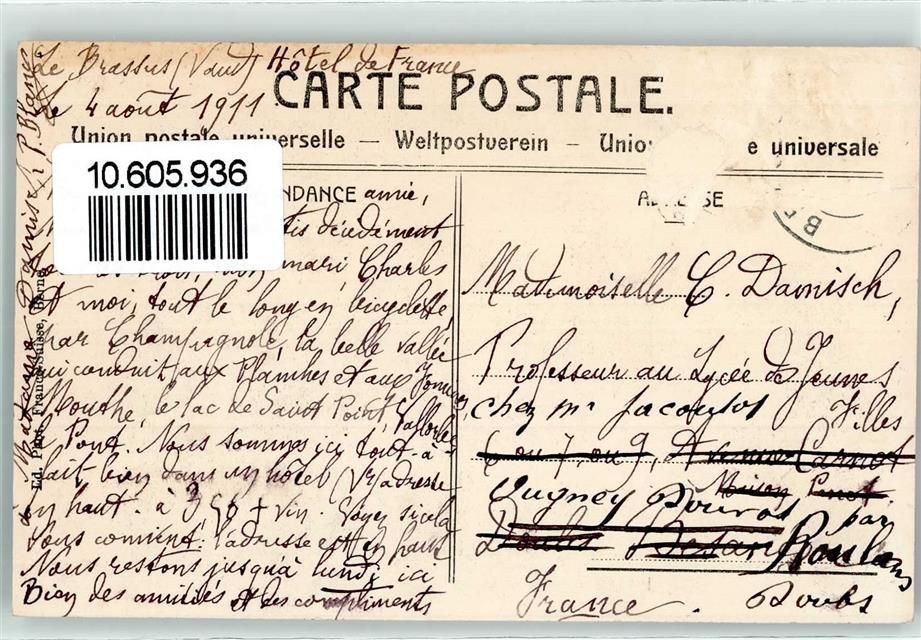 Le Brassus (Vaud) Hôtel de France
le 4 août 1911
CARTE POSTALE.
Union postale universelle — Weltpostverein — Unio e universale
10.605.936
NDANCE
amie,
décidément
mari Charles
et moi, tout le long en bicyclette,
par Champagnole, la belle vallée
qui conduit aux Planches et aux
Mouthe, le lac de Saint Point,
Pont. Nous sommes ici tout-à-
fait bien dans un hôtel (Vr adresse
en haut. à 3,50 + vin. Voyez si cela
vous convient. l'adresse est en haut
Nous restons jusqu'à lundi ici
Bien des amitiés et des compliments
Ed. Phot. Franco-Suisse, Berne
Madame Damisch
P. Blanc
AD SSE
Mademoiselle C. Damisch,
Professeur au Lycée de Jeunes
Filles
chez Mr Jacoulot
6 ou 7, ou 9, Avenue Carnot
Maison Pinot
Vugney
par
Doubs Besan
Roulans
France.
Doubs